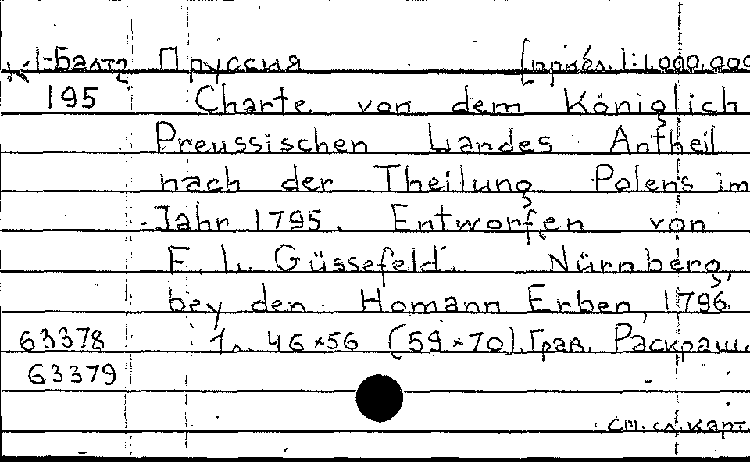 К 1-Балт 2 Пруссия [прибл. 1:1.000.000
195 Charte von dem Königlich
Preussischen Landes Antheil
nach der Theilung Polens im
Jahr 1795. Entworfen von
F. L. Güssefeld. Nürnberg,
bey den Homann Erben, 1796.
63378 1 л. 46×56 (59×70). Грав. Раскраш.
63379
см. сл. карт.